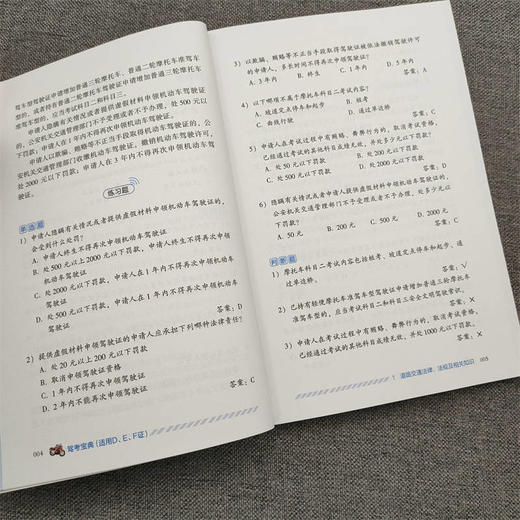 驾车型驾驶证申请增加普通三轮摩托车、普通二轮摩托车准驾车
型的，或者持有普通二轮摩托车驾驶证申请增加普通三轮摩托车
准驾车型的，应当考试科目二和科目三。
申请人隐瞒有关情况或者提供虚假材料申领机动车驾驶证
的，公安机关交通管理部门不予受理或者不予办理，处 500 元以
下罚款；申请人在 1 年内不得再次申领机动车驾驶证。
申请人以欺骗、贿赂等不正当手段取得机动车驾驶证的，公
安机关交通管理部门收缴机动车驾驶证，撤销机动车驾驶许可，
处 2000 元以下罚款；申请人在 3 年内不得再次申领机动车驾
驶证。
练习题
单选题
1）申请人隐瞒有关情况或者提供虚假材料申领机动车驾驶证的，
会受到什么处罚？
A. 申请人终生不得再次申领机动车驾驶证
B. 处 500 元以上 2000 元以下罚款，申请人终生不得再次申领
机动车驾驶证
C. 处 2000 元以下罚款，申请人在 1 年内不得再次申领机动车
驾驶证
D. 处 500 元以下罚款，申请人在 1 年内不得再次申领机动车
驾驶证
答案：D
2）提供虚假材料申领驾驶证的申请人应承担下列哪种法律责任？
A. 处 20 元以上 200 元以下罚款
B. 取消申领驾驶证资格
C. 1 年内不得再次申领驾驶证
D. 2 年内不能再次申领驾驶证
答案：C
004 驾考宝典（适用D、E、F证）
3）以欺骗、贿赂等不正当手段取得驾驶证被依法撤销驾驶许可
的申请人，多长时间不得再次申请驾驶证？
A. 3 年内 B. 终生 C. 1 年内 D. 5 年内
答案：A
4）以下哪项不属于摩托车科目二考试内容？
A. 坡道定点停车和起步 B. 桩考
C. 曲线行驶 D. 通过单边桥
答案：C
5）申请人在考试过程中有贿赂、舞弊行为的，取消考试资格，
已经通过考试的其他科目成绩无效，并处多少元以下罚款？
A. 处 50 元以下罚款 B. 处 200 元以下罚款
C. 处 500 元以下罚款 D. 处 2000 元以下罚款
6）隐瞒有关情况或者申请人提供虚假材料申领机动车驾驶证的，
公安机关交通管理部门不予受理或者不予办理，处多少元以
下罚款？
A. 50 元 B. 200 元 C. 500 元 D. 2000 元
答案：C
判断题
1）摩托车科目二考试内容包括桩考、坡道定点停车和起步、通
过单边桥。
答案：√
2）已持有轻便摩托车准驾车型驾驶证申请增加普通三轮摩托车
准驾车型的，应当考试科目二和科目三安全文明驾驶常识。
答案：×
3）申请人在考试过程中有贿赂、舞弊行为的，取消考试资格，
已经通过考试的其他科目成绩无效，并处1000元以下罚款。
答案：×
1 道路交通法律、法规及相关知识 005